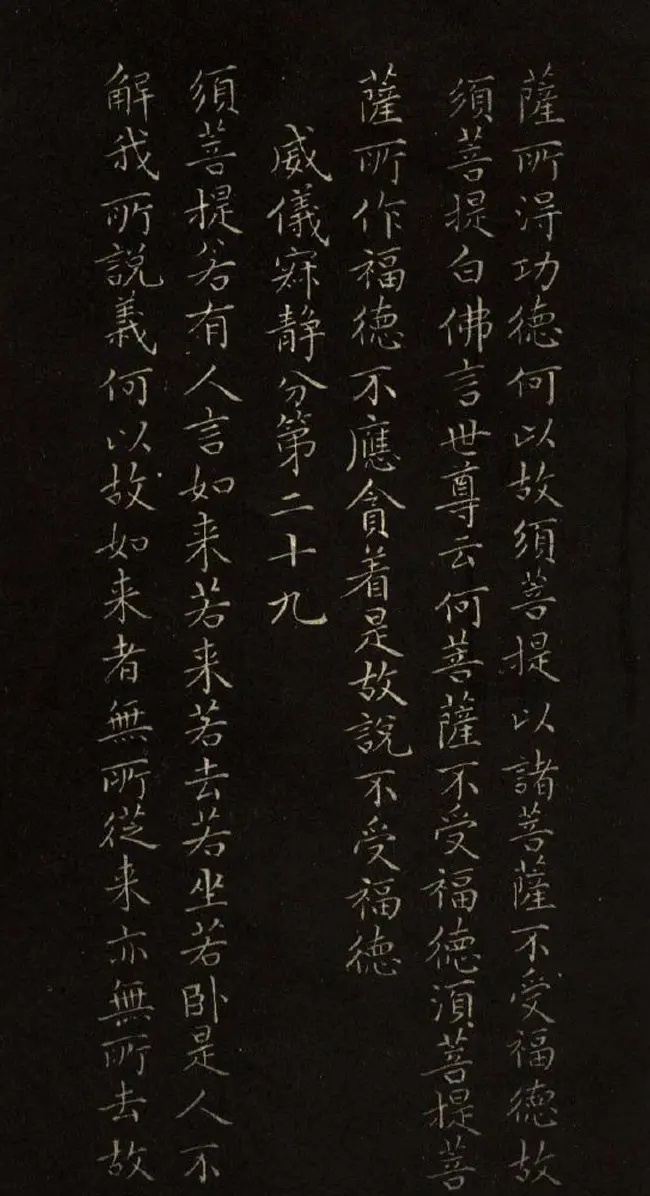 薩所得功德何以故須菩提以諸菩薩不受福德故
須菩提白佛言世尊云何菩薩不受福德須菩提菩
薩所作福德不應貪着是故說不受福德
威儀寂静分第二十九
須菩提若有人言如来若来若去若坐若卧是人不
解我所說義何以故如来者無所從来亦無所去故